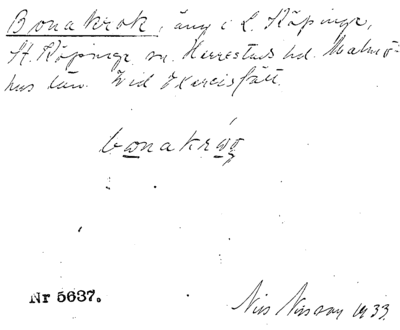 Bonakrok, äng i L. Köpinge,
St. Köpinge sn. Herrestads hd. Malmö-
hus län. Vid Exercisfält.
bonakråg
Nr 5637.
1933.